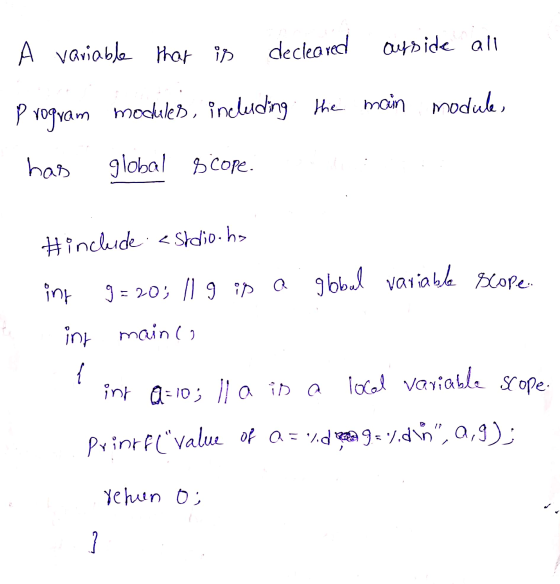 A variable that is decleared outside all
Program modules, including the main module,
has global scope.
#include <stdio.h>
int g=20; // g is a global variable scope.
int main()
{
int a=10; // a is a local variable scope.
Printf("value of a = %d, g = %d\n", a,g);
return 0;
}